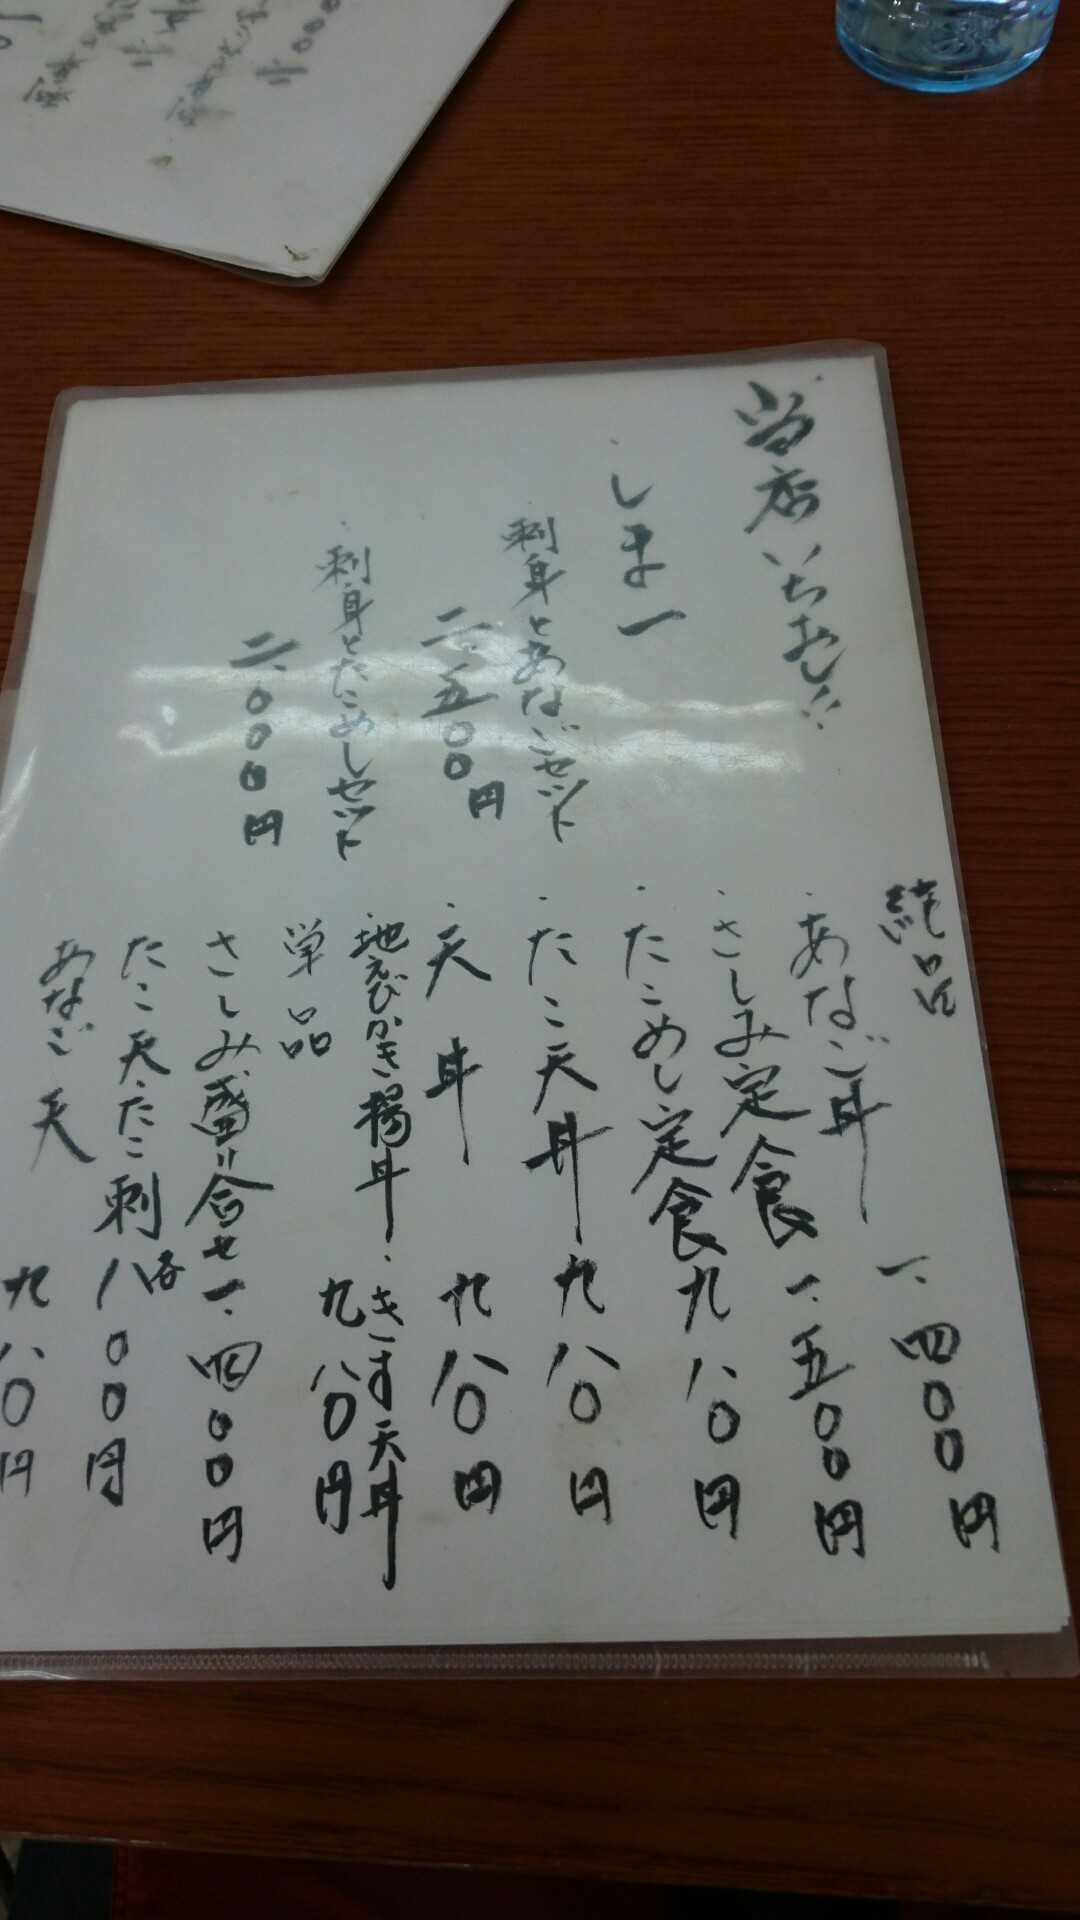 当店いちおし!!
しま一
・刺身とあなごセット
二.五〇〇円
・刺身とたこめしセット
二.〇〇〇円
・あなご丼 一.四〇〇円
・さしみ定食 一.五〇〇円
・たこめし定食 九八〇円
・たこ天丼 九八〇円
・天丼 九八〇円
・地えびかき揚丼・きす天丼
九八〇円
単品
さしみ盛り合せ 一.四〇〇円
たこ天たこ刺 各八〇〇円
あなご天 九八〇円